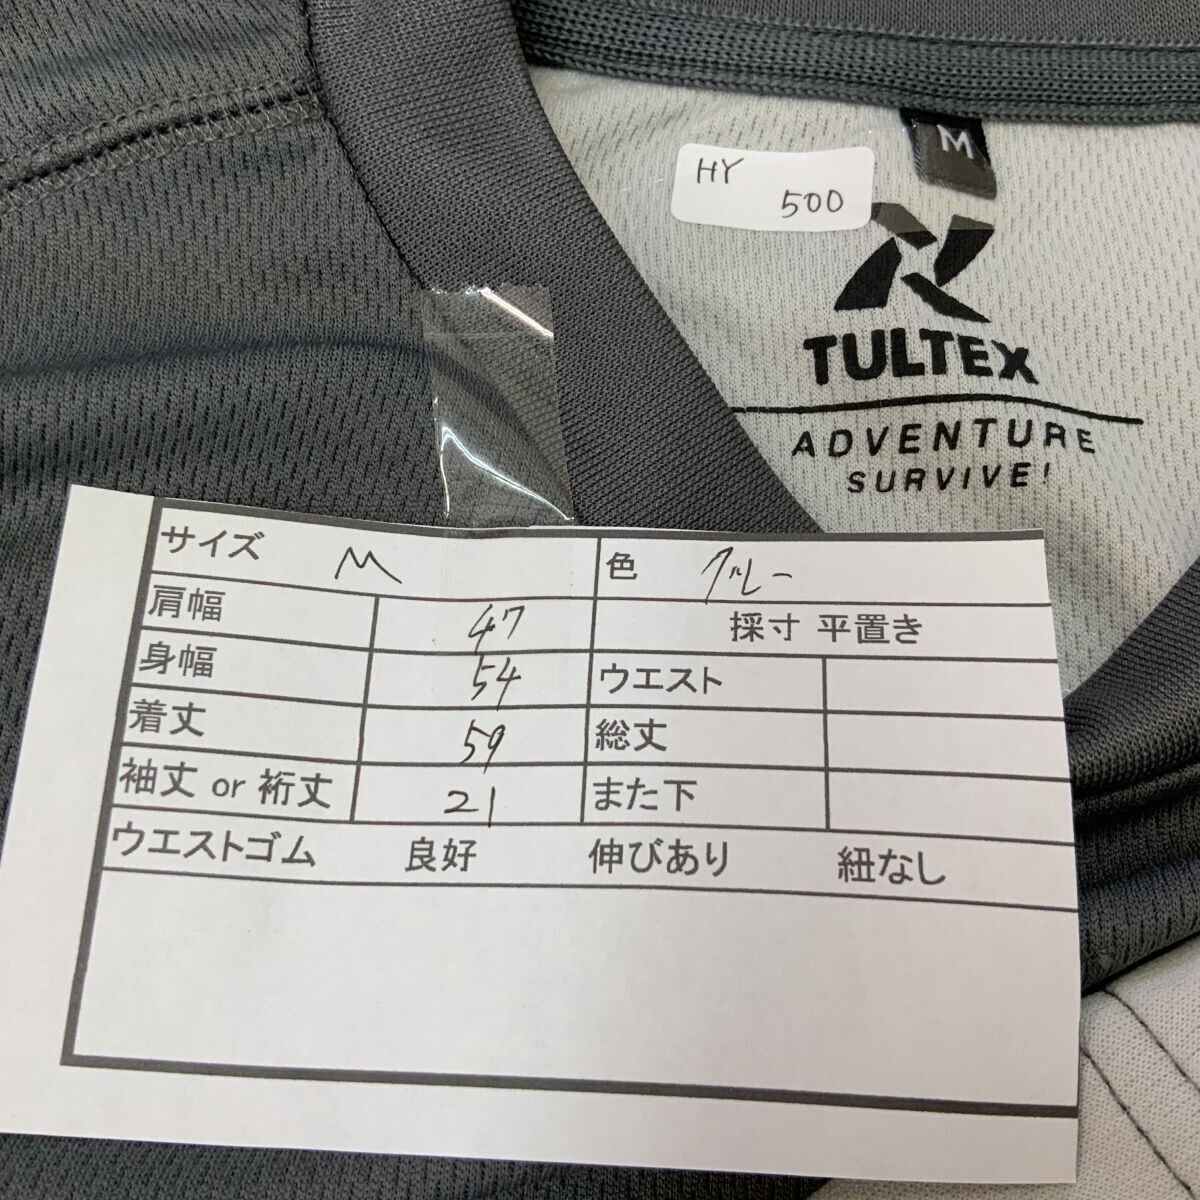 M
HY
500
TULTEX
ADVENTURE
SURVIVE!
サイズ M 色 グレー
肩幅 47 採寸 平置き
身幅 54 ウエスト
着丈 59 総丈
袖丈 or 裄丈 21 また下
ウエストゴム 良好 伸びあり 紐なし